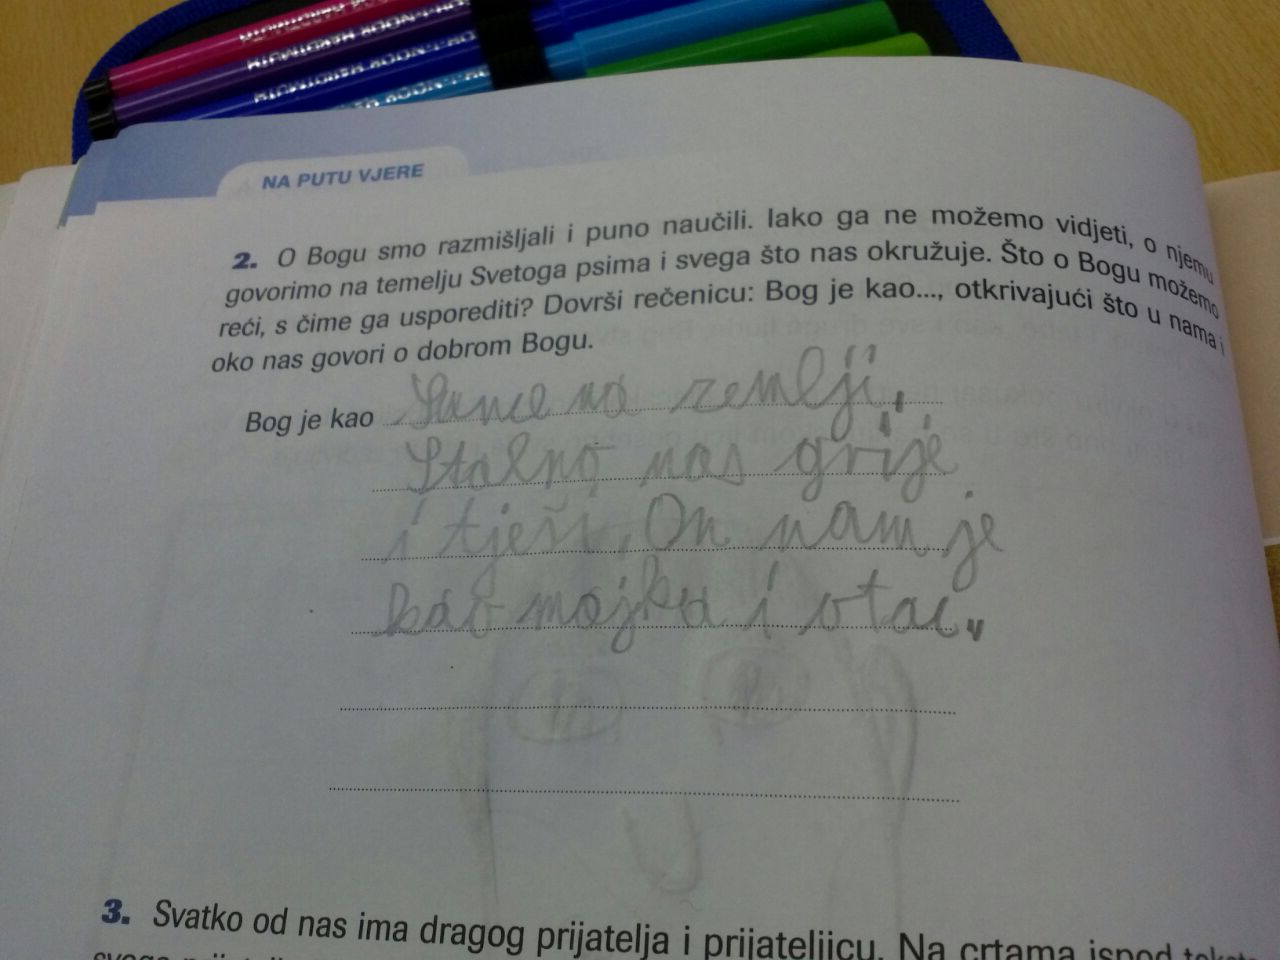 NA PUTU VJERE
2. O Bogu smo razmišljali i puno naučili. Iako ga ne možemo vidjeti, o njemu
govorimo na temelju Svetoga psima i svega što nas okružuje. Što o Bogu možemo
reći, s čime ga usporediti? Dovrši rečenicu: Bog je kao..., otkrivajući što u nama i
oko nas govori o dobrom Bogu.
Bog je kao Sunce na zemlji.
Stalno nas grije
i tješi. On nam je
kao majka i otac.
3. Svatko od nas ima dragog prijatelja i prijateljicu. Na crtama ispod